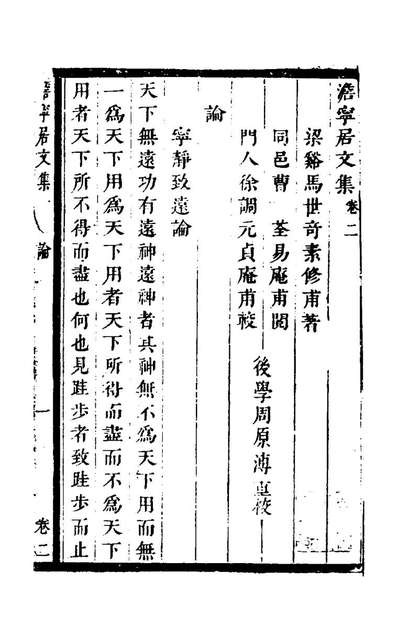 澹寧居文集卷二
梁谿馬世奇素修甫著
同邑曹荃易庵甫閱
門人徐調元貞庵甫校
後學周原溥重校
論
寧靜致遠論
天下無遠功有遠神遠神者其神無不爲天下用而無
一爲天下用爲天下用者天下所得而盡而不爲天下
用者天下所不得而盡也何也見跬步者致跬步而止
澹寧居文集
論
一
卷二